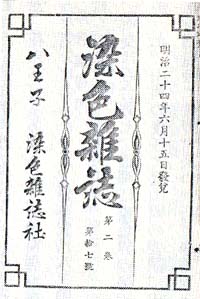 明治二十四年六月十五日發兌
染色雜誌
第二卷
第拾七號
八王子 染色雜誌社